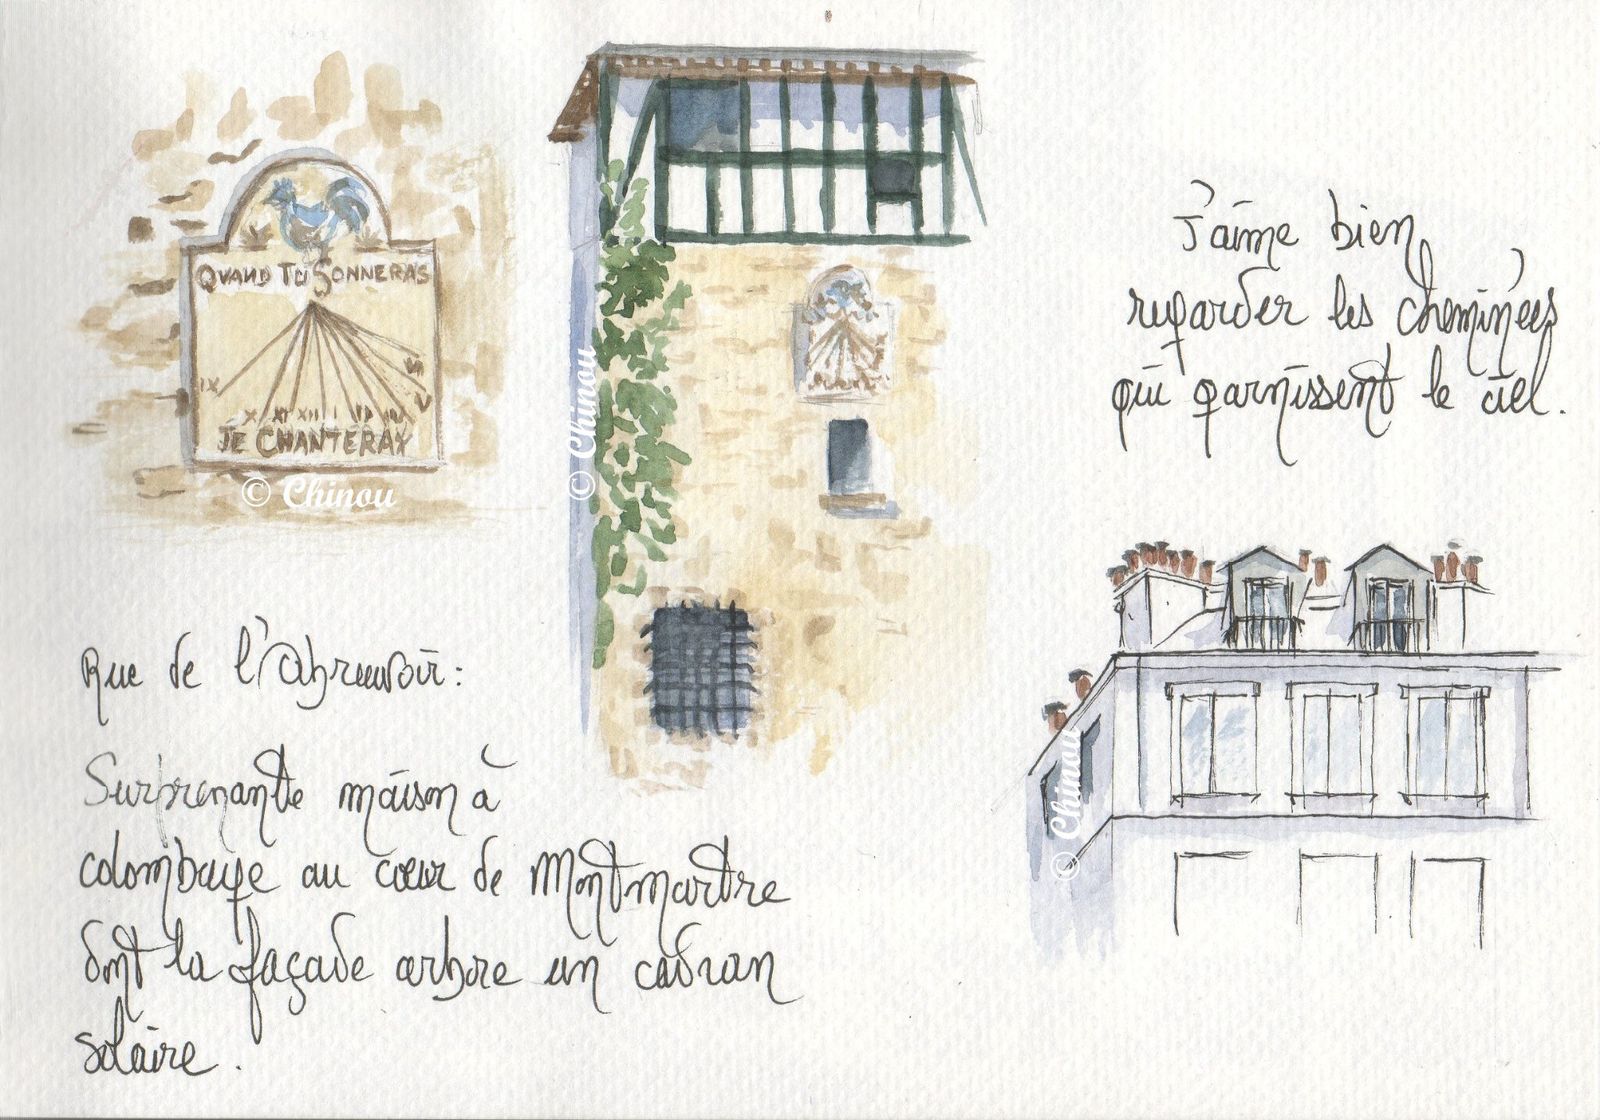 QVAND TU SONNERAS
IX X XI XII I V VI
JE CHANTERAY
© Chinou
© Chinou
J'aime bien
regarder les cheminées
qui garnissent le ciel.
© Chinou
Rue de l'Abreuvoir :
Surprenante maison à
colombage au cœur de Montmartre
dont la façade arbore un cadran
solaire.